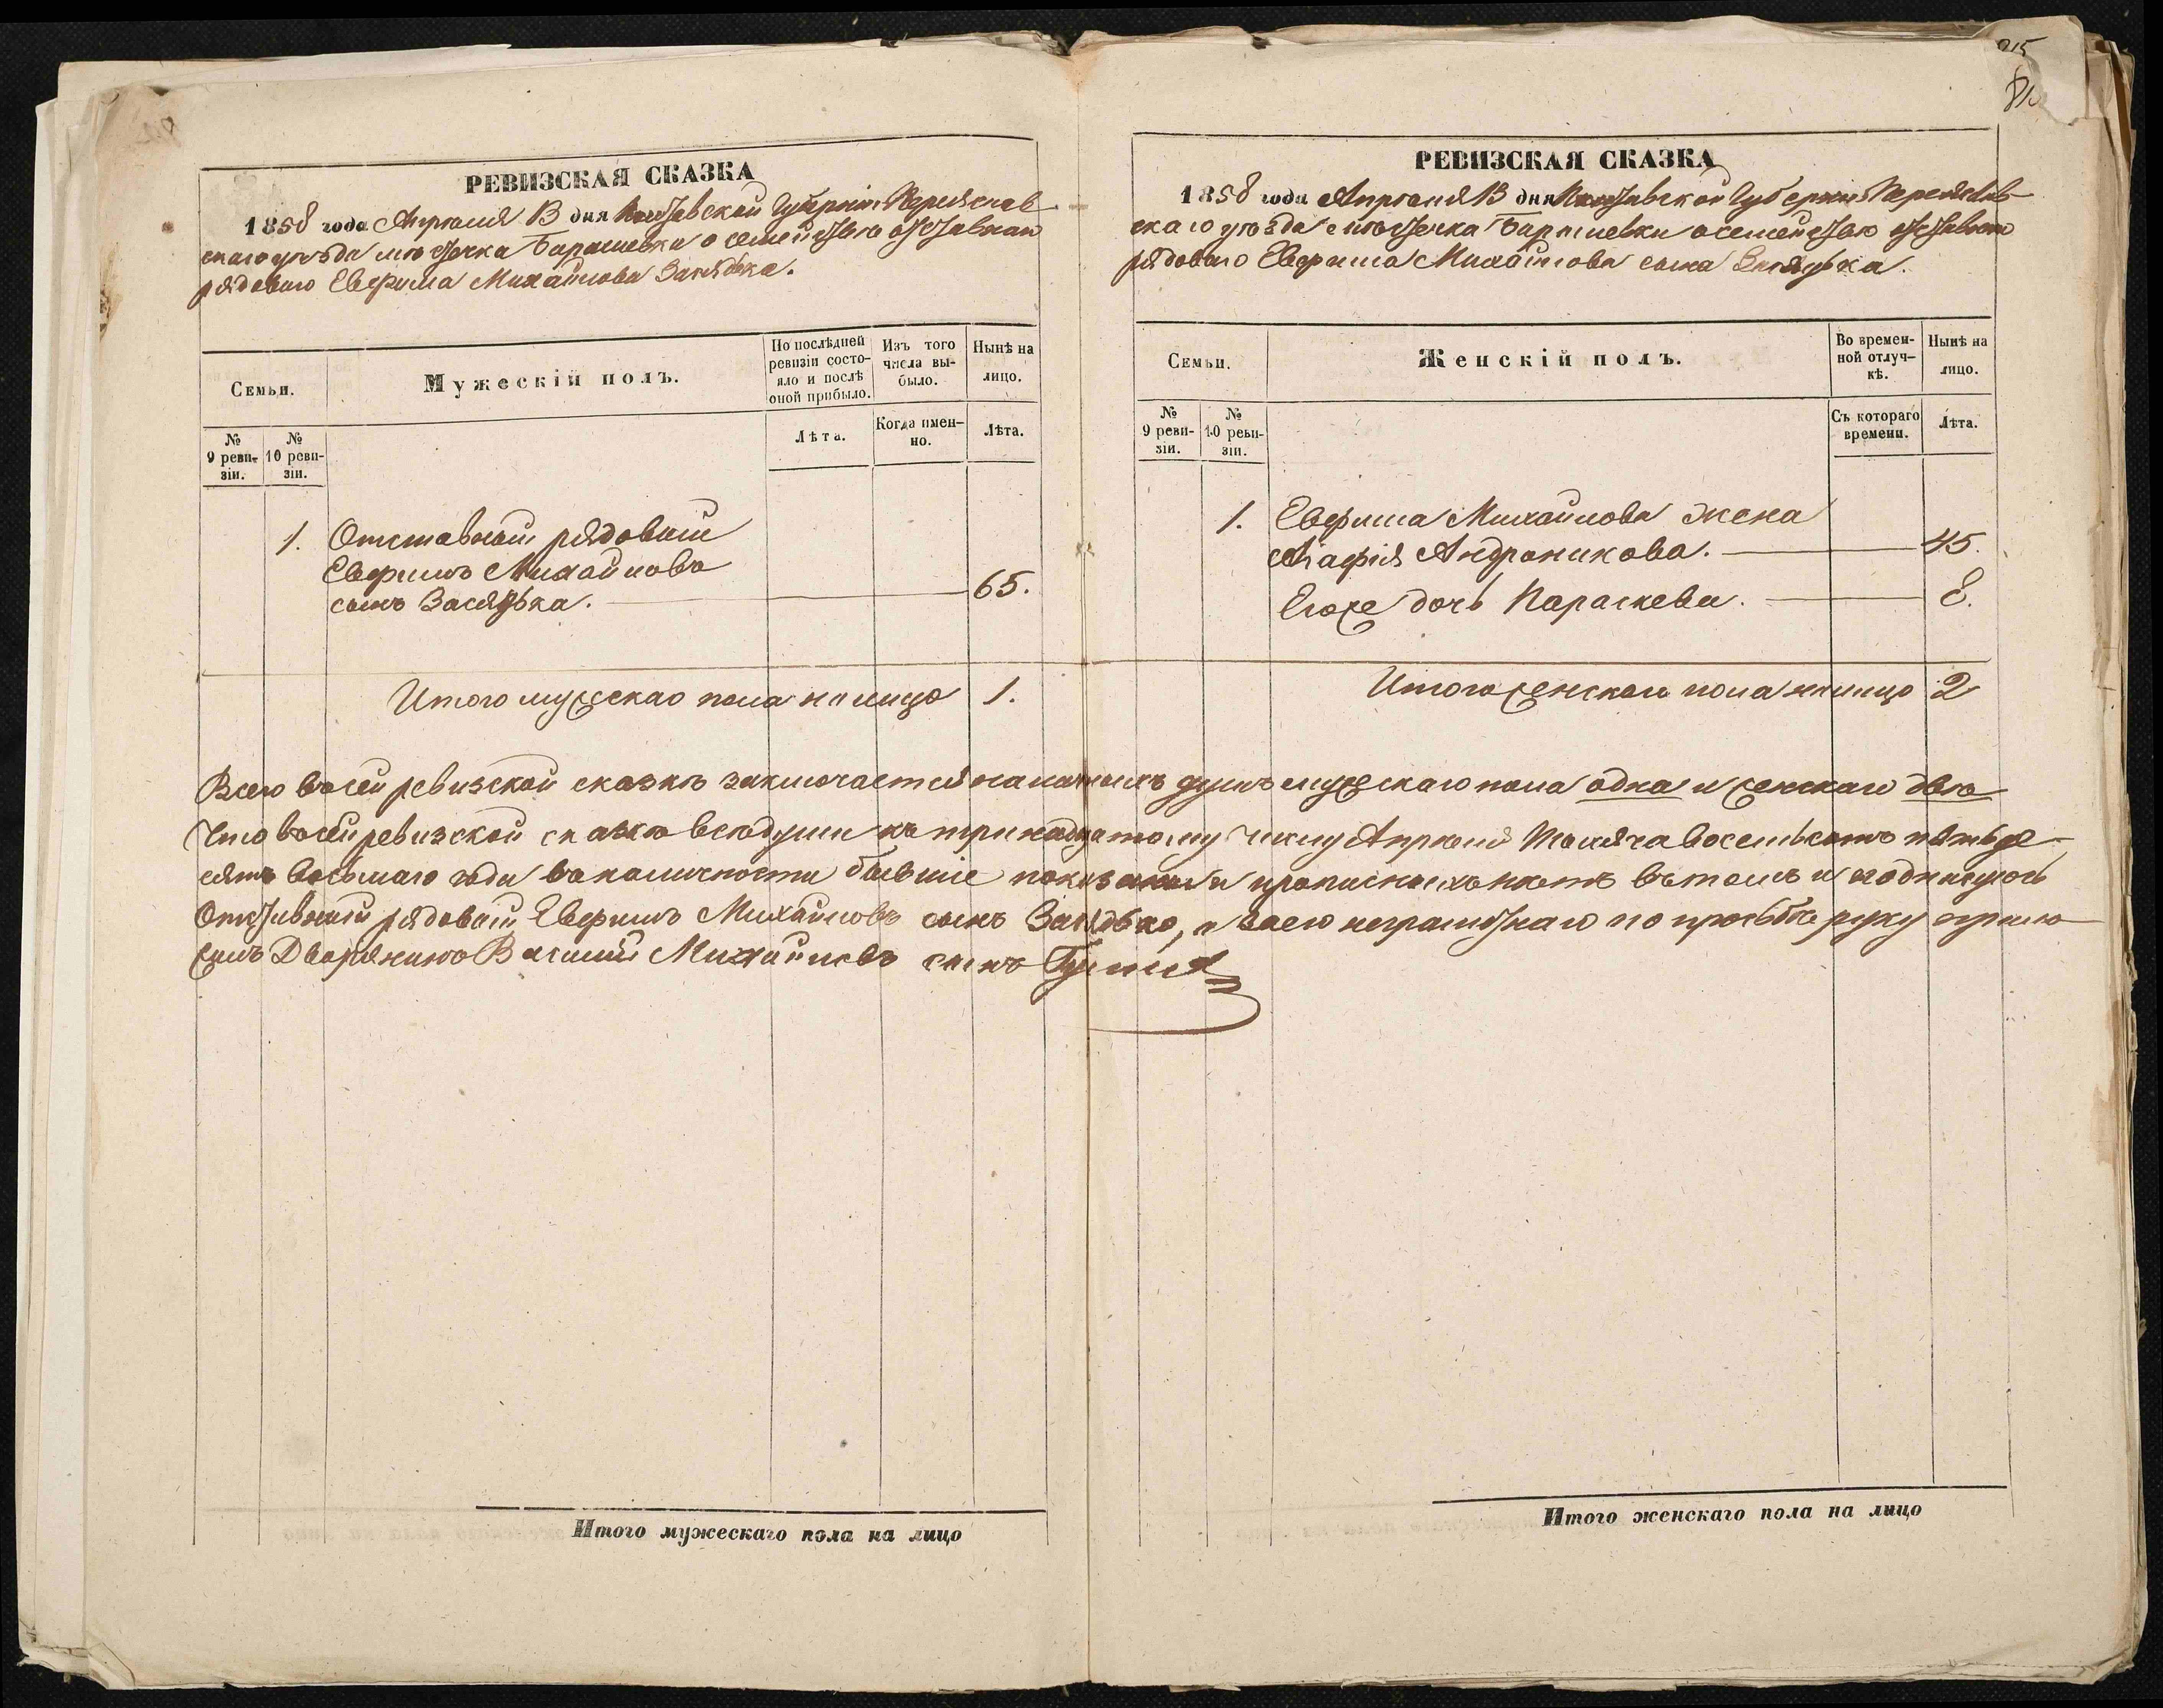 РЕВИЗСКАЯ СКАЗКА
1858 года Апрѣля 13 дня Полтавской Губерніи Переяслав
скаго уѣзда мѣстечка Барышевки о семействѣ отставнаго
рядоваго Евфима Михайлова
Семьи.
Мужескій полъ.
По послѣдней
ревизіи состо-
яло и послѣ
оной прибыло.
Изъ того
числа вы-
было.
Нынѣ на
лицо.
№
9 реви-
зіи.
№
10 реви-
зіи.
Лѣта.
Когда имен-
но.
Лѣта.
1. Отставной рядовый
Евфимъ Михайловъ
сынъ Засядька. 65.
Итого мужескаго пола на лицо 1.
РЕВИЗСКАЯ СКАЗКА
1858 года Апрѣля 13 дня Полтавской Губерніи Переяслав-
скаго уѣзда мѣстечка Барышевки о семействѣ отставнаго
рядоваго Евфима Михайлова сына
Семьи.
Женскій полъ.
Во времен-
ной отлуч-
кѣ.
Нынѣ на
лицо.
№
9 реви-
зіи.
№
10 реви-
зіи.
Съ котораго
времени.
Лѣта.
1. Евфима Михайлова жена
Агафія Андроникова. 45.
Его же дочь Параскева. 8.
Итого женскаго пола на лицо 2
Всего въ сей ревизской сказкѣ заключается наличныхъ душъ мужескаго пола одна и женскаго двѣ
Что въ сей ревизской сказкѣ всѣ души къ тринадцатому числу Апрѣля Тысяча восемьсотъ пятьде-
сятъ восьмаго года въ наличности бывшіе показаны и прописныхъ нѣтъ въ томъ и подписуюсь
Отставной рядовый Евфимъ Михайловъ сынъ а вмѣсто его неграмотнаго по просьбѣ руку прило
жилъ Дворянинъ Василій Михайловъ сынъ
Итого мужескаго пола на лицо
Итого женскаго пола на лицо